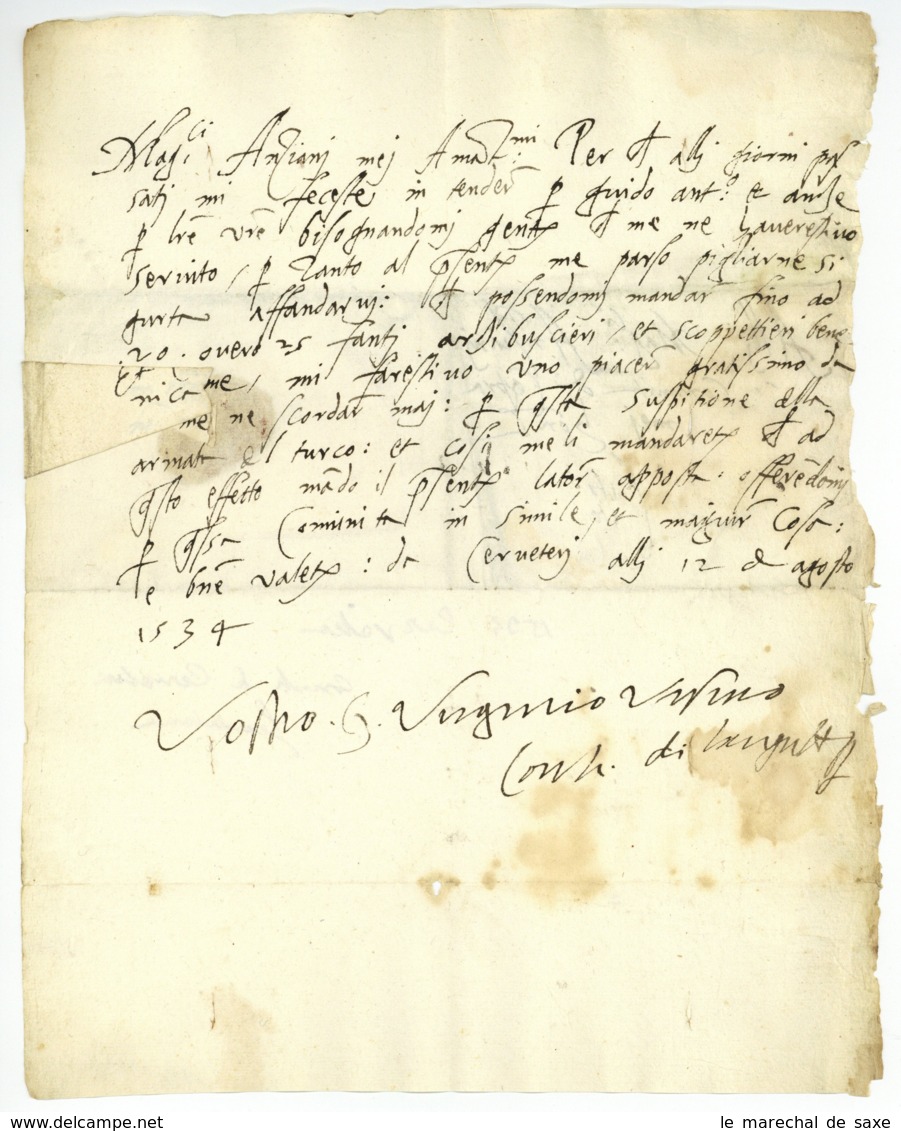 Mag.ci Anziani miei Amat.mi Per che alli giorni pas
sati mi feceste intender per guido ant.o et anche
per lre vre bisognandomi gente che me ne haverestivo
servito / per tanto al presente me parso pigliarne si
gurta affandarvi: che possendomi mandar fino ad
20 . overo 25 fanti archibuscieri / et scoppettieri bene
me / mi farestivo uno piacer gratissimo da
me ne scordar mai: per questa suspitione della
armata del turco: et cosi me li mandarete che ad
questo effetto mando il presente lator apposta: offerendomi
per questa Comunita in simile / et magiur Cosa:
e bene valete : da Cerveteri alli 12 de agosto
1534
Vostro . S. Virginio Ursino
Conte di
le marechal de saxe